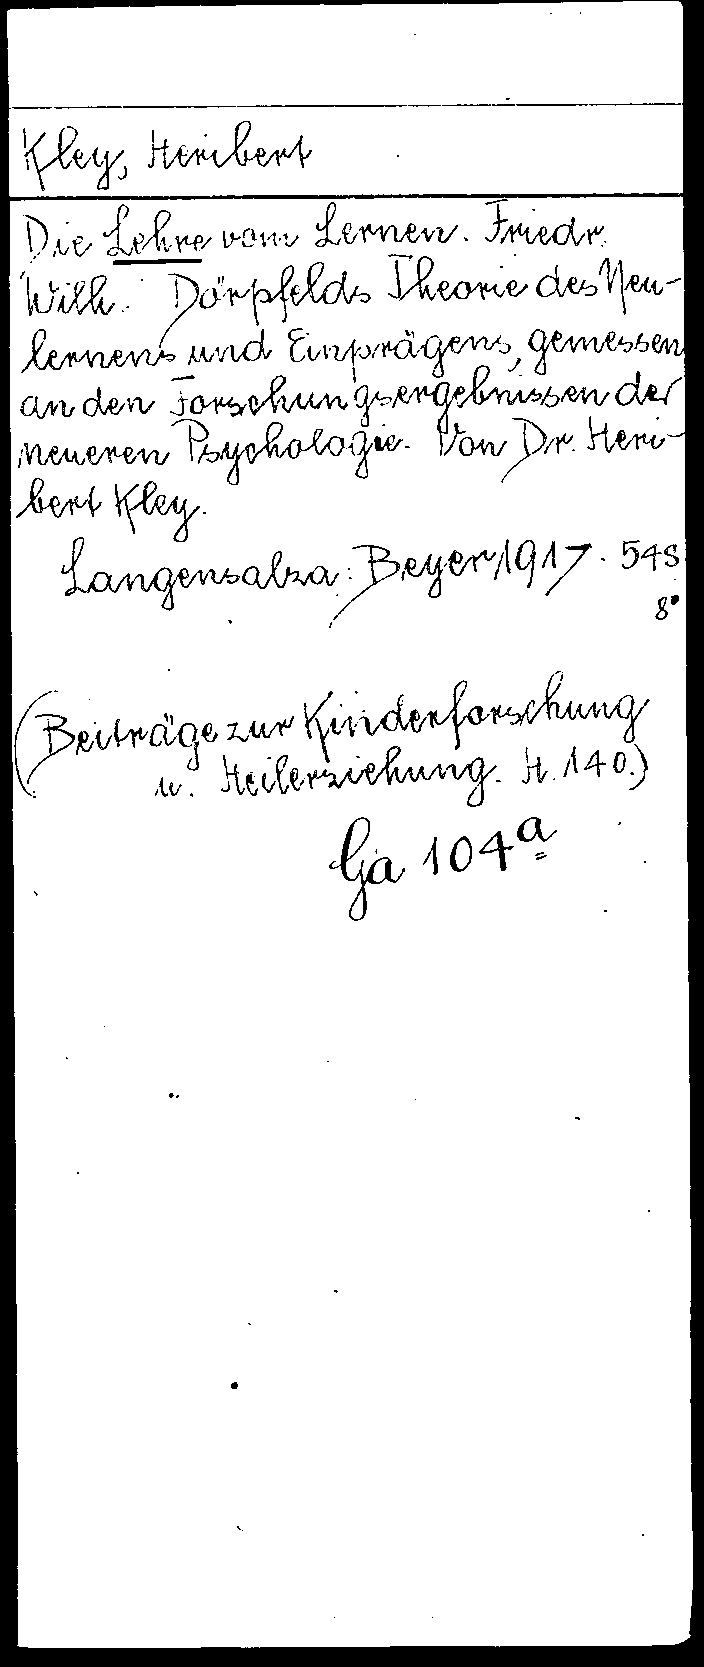 Kley, Heribert
Die Lehre vom Lernen. Friedr.
Wilh. Dörpfelds Theorie des Neu-
lernens und Einprägens, gemessen
an den Forschungsergebnissen der
neueren Psychologie. Von Dr. Heri-
bert Kley.
Langensalza: Beyer 1917. 54S
8°
(Beiträge zur Kinderforschung
u. Heilerziehung. H. 140.)
Ga 104a